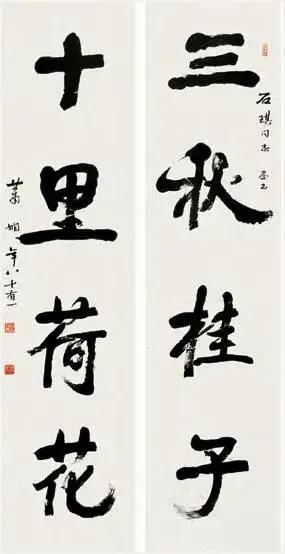 石琪同志
三秋桂子
十里荷花
蕭嫻年八十有一